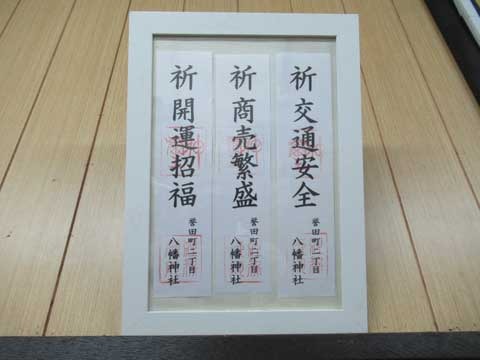 祈交通安全
誉田町二丁目
八幡神社
祈商売繁盛
誉田町二丁目
八幡神社
祈開運招福
誉田町二丁目
八幡神社